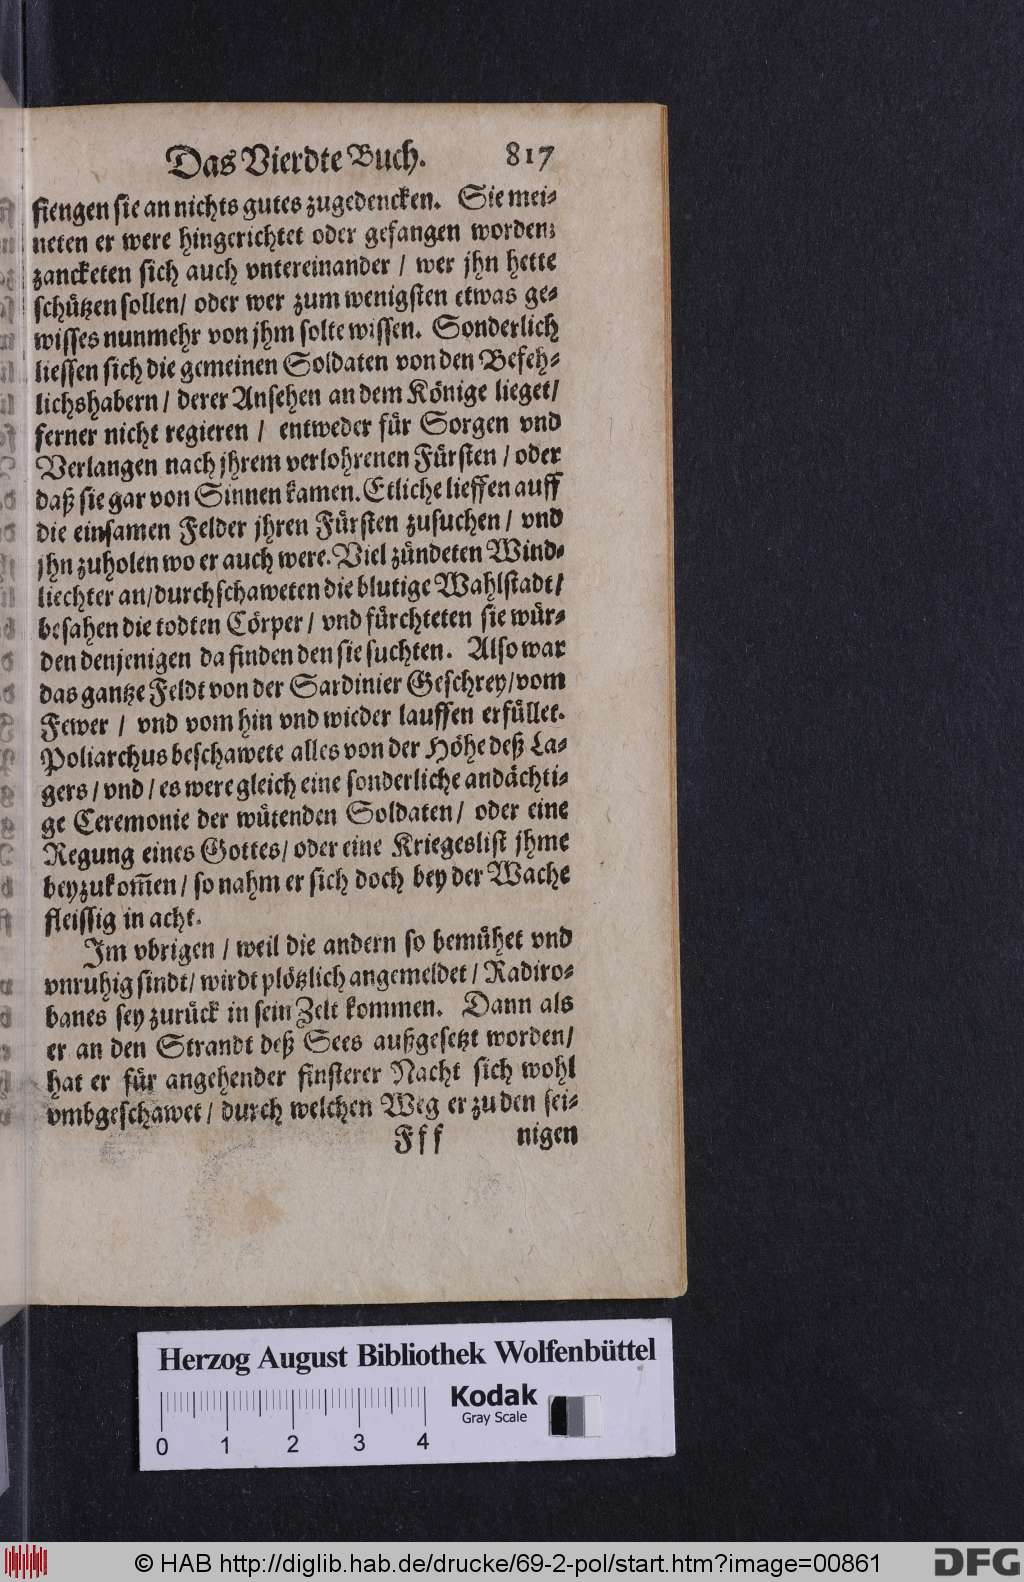 Das Vierdte Buch. 817
fiengen sie an nichts gutes zugedencken. Sie mei-
neten er were hingerichtet oder gefangen worden;
zancketen sich auch vntereinander / wer jhn hette
schützen sollen / oder wer zum wenigsten etwas ge-
wisses nunmehr von jhm solte wissen. Sonderlich
liessen sich die gemeinen Soldaten von den Befeh-
lichshabern / derer Ansehen an dem Könige lieget /
ferner nicht regieren / entweder für Sorgen vnd
Verlangen nach jhrem verlohrenen Fürsten / oder
daß sie gar von Sinnen kamen. Etliche lieffen auff
die einsamen Felder jhren Fürsten zusuchen / vnd
jhn zuholen wo er auch were. Viel zündeten Wind-
liechter an / durchschaweten die blutige Wahlstadt /
besahen die todten Cörper / vnd fürchteten sie wür-
den denjenigen da finden den sie suchten. Also war
das gantze Feldt von der Sardinier Geschrey / vom
Fewer / vnd vom hin vnd wieder lauffen erfüllet.
Poliarchus beschawete alles von der Höhe deß La-
gers / vnd / es were gleich eine sonderliche andächti-
ge Ceremonie der wütenden Soldaten / oder eine
Regung eines Gottes / oder eine Kriegeslist jhme
beyzukom̅en / so nahm er sich doch bey der Wache
fleissig in acht.
Im vbrigen / weil die andern so bemühet vnd
vnruhig sindt / wirdt plötzlich angemeldet / Radiro-
banes sey zurück in sein Zelt kommen. Dann als
er an den Strandt deß Sees außgesetzt worden /
hat er für angehender finsterer Nacht sich wohl
vmbgeschawet / durch welchen Weg er zu den sei-
Fff nigen
Herzog August Bibliothek Wolfenbüttel
Kodak
Gray Scale
0 1 2 3 4
© HAB http://diglib.hab.de/drucke/69-2-pol/start.htm?image=00861
DFG